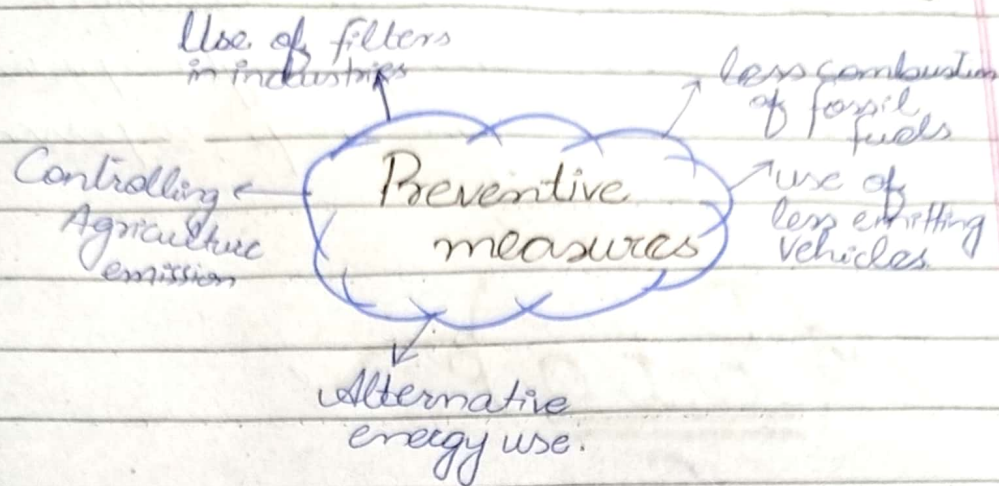 Use of filters
in industries
less combustion
of fossil
fuels
Controlling
Agriculture
emission
Preventive
measures
use of
less emitting
vehicles
Alternative
energy use.